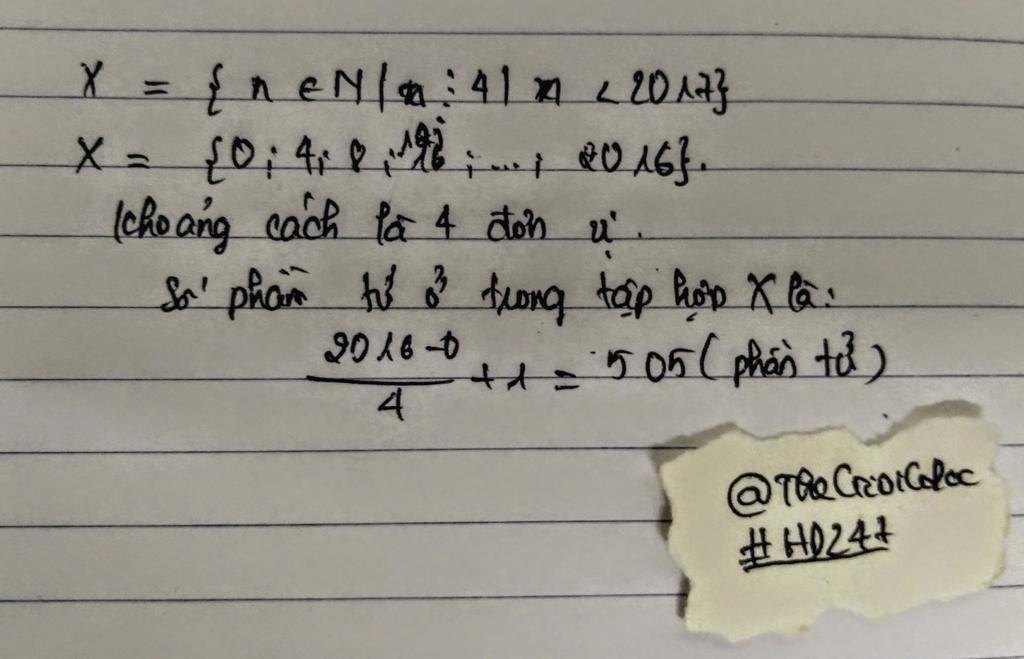 X = { n ∈ N | n ⋮ 4 | n < 2017}
X = {0; 4; 8; 12; 16; ...; 2016}.
khoảng cách là 4 đơn vị.
Số phần tử ở trong tập hợp X là:
(2016-0)/4 + 1 = 505 (phần tử)
#HD247